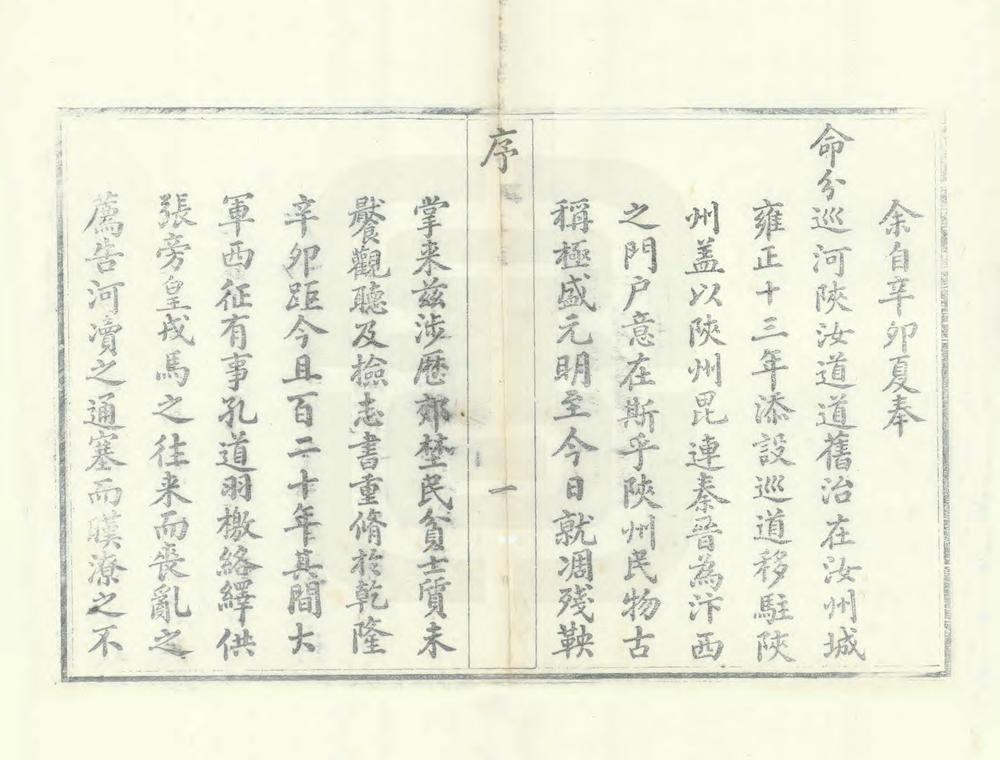 余自辛卯夏奉
命分巡河陝汝道道舊治在汝州城
雍正十三年添設巡道移駐陝
州蓋以陝州毘連秦晉為汴西
之門户意在斯乎陝州民物古
稱極盛元明至今日就凋殘鞅
序
一
掌来兹涉歷郊埜民貧士質未
饜觀聽及撿志書重脩於乾隆
辛卯距今且百二十年其間大
軍西征有事孔道羽檄絡繹供
張旁皇戎馬之往来而喪亂之
薦告河瀆之通塞而暵潦之不